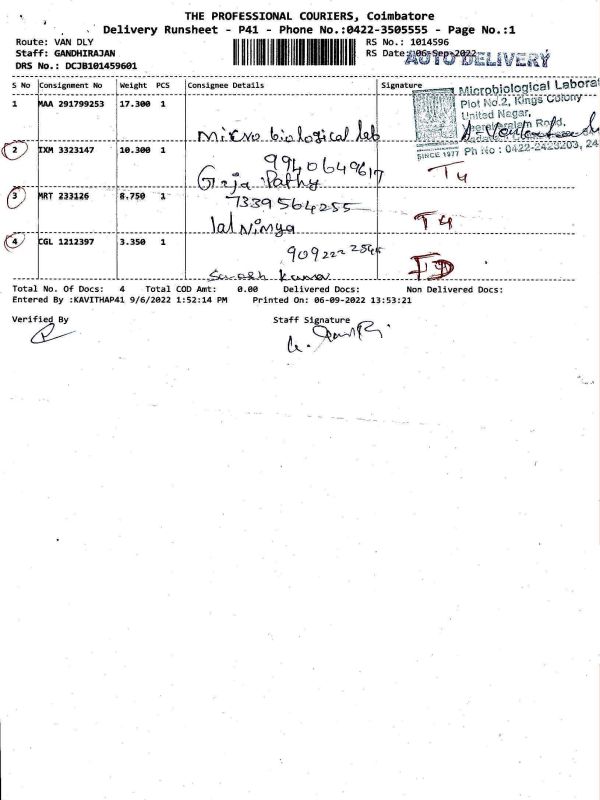 THE PROFESSIONAL COURIERS, Coimbatore
Delivery Runsheet - P41 - Phone No.:0422-3505555 - Page No.:1
Route: VAN DLY RS No.: 1014596
Staff: GANDHIRAJAN RS Date: 06-Sep-2022
AUTO DELIVERY
DRS No.: DCJB101459601
S No Consignment No Weight PCS Consignee Details Signature
Microbiological Laborat
Plot No.2, Kings Colony
United Nagar,
1 MAA 291799253 17.300 1
Micro biological lab
SINCE 1977 Ph No : 0422-2423203, 24
2 IXM 3323147 10.300 1
9940649617
T4
3 MRT 233126 8.750 1
7339564255
T4
4 CGL 1212397 3.350 1
Total No. Of Docs: 4 Total COD Amt: 0.00 Delivered Docs: Non Delivered Docs:
Entered By :KAVITHAP41 9/6/2022 1:52:14 PM Printed On: 06-09-2022 13:53:21
Verified By Staff Signature